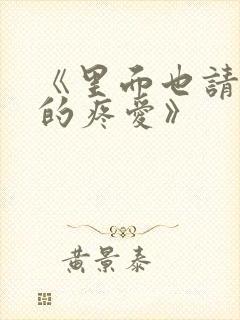 《里而也請
的疼愛》
黃景泰